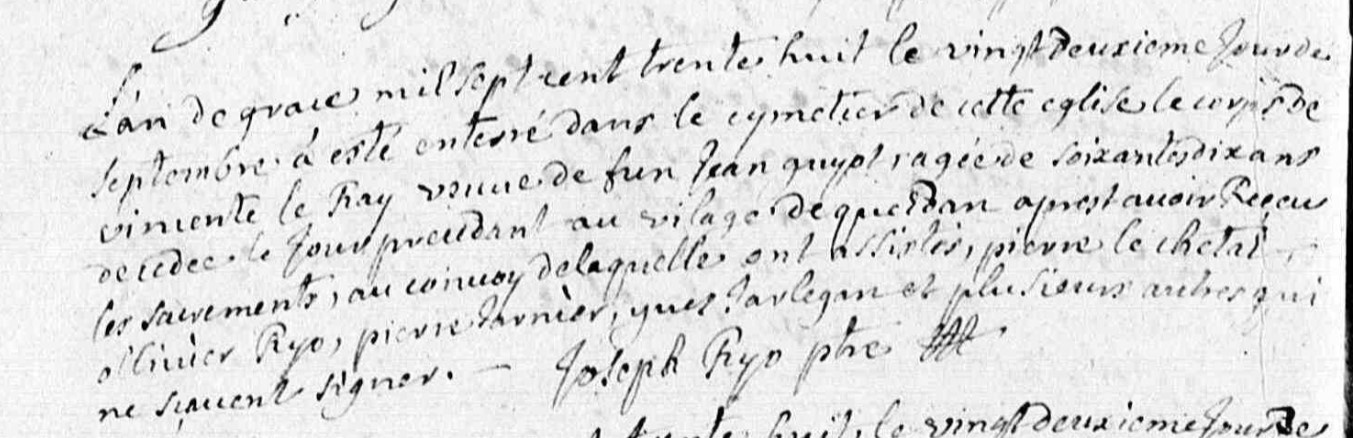 L'an de grace mil sept cent trente huit le vingt deuxieme Jour de
septembre à esté enterré dans le cymetier de cette eglise le corps de
vincente le Ray veuve de feu Jean guyot, agée de soixante dix ans
decedée le Jour precedant au vilage de querdan aprest avoir Receu
les sacrements, au convoy delaquelle ont assistés, pierre le chetal
ollivier Ryo, pierre Jarnier, yues Jarlegan et plusieurs autres qui
ne sçavent signer. — Joseph Ryo ptre
trente huit, le vingt deuxieme Jour de